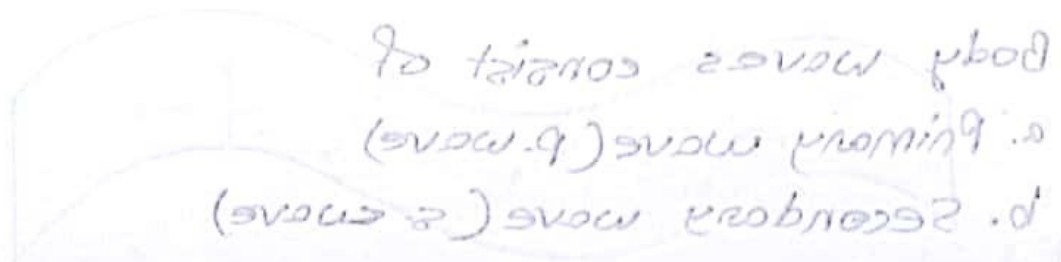 Body waves consist of
a. Primary wave (P.wave)
b. Secondary wave (s.wave)